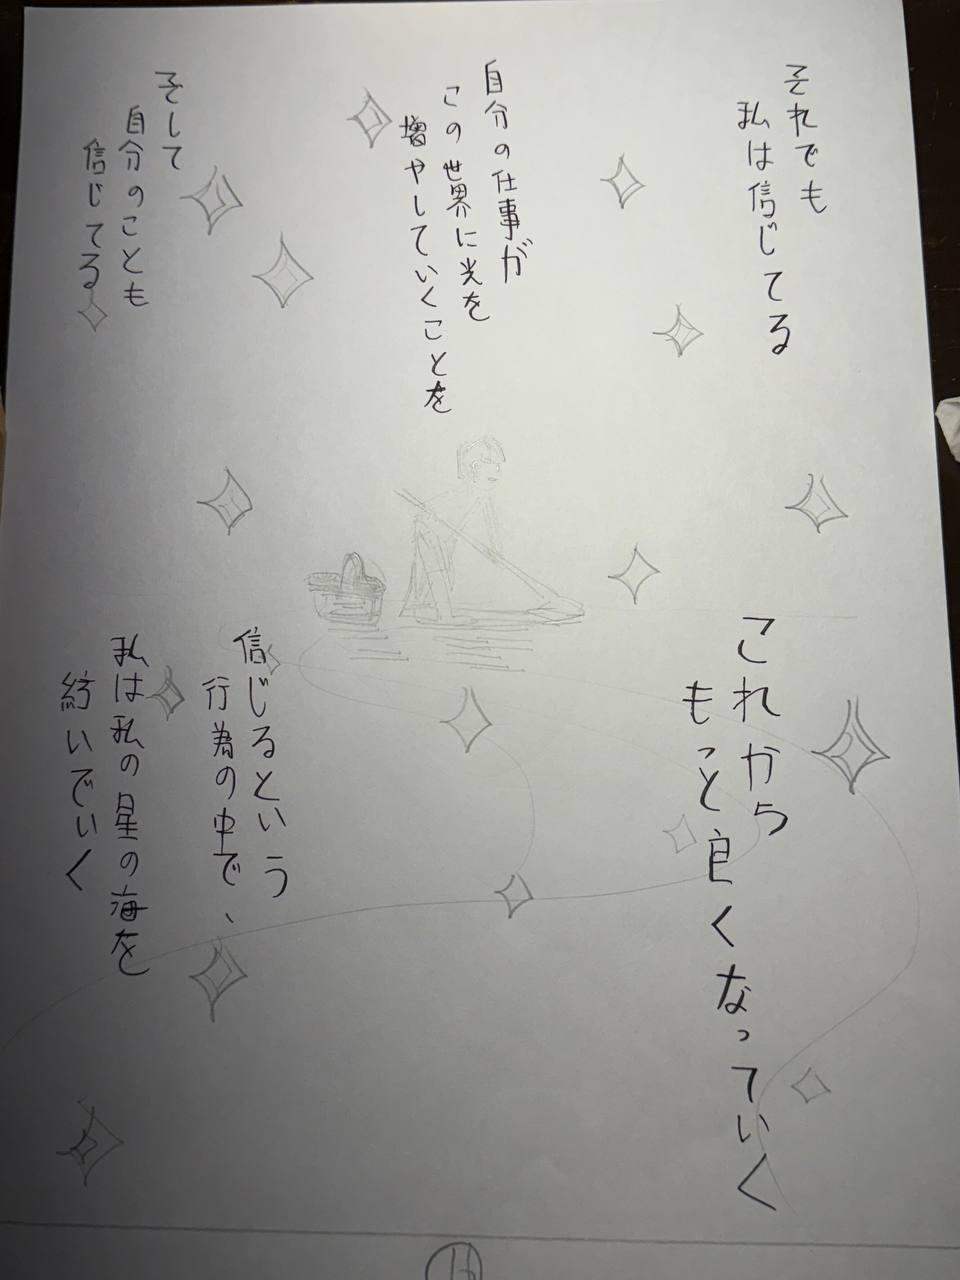 それでも
私は信じてる
自分の仕事が
この世界に光を
増やしていくことを
そして
自分のことも
信じてる
これから
もっと良くなっていく
信じるという
行為の中で、
私は私の星の海を
紡いでいく